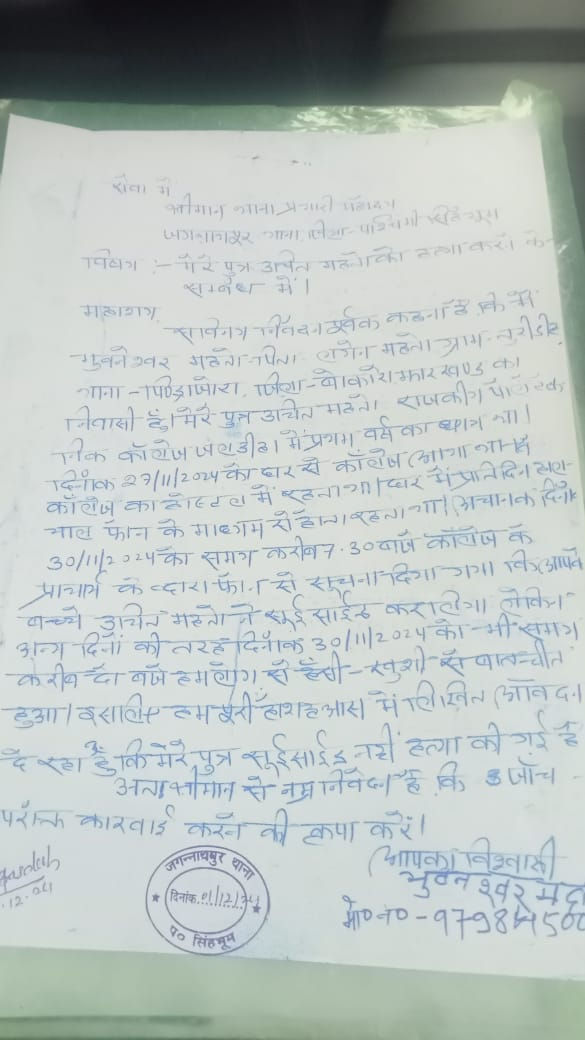 सेवा में
श्रीमान थाना प्रभारी महोदय
जगन्नाथपुर थाना जिला-पश्चिमी सिंहभूम
विषय :- मेरे पुत्र उचित महतो को हत्या करने के
सम्बंध में।
महाशय
सविनय निवेदन पूर्वक कहना है कि मैं
भुवनेश्वर महतो पिता महतो ग्राम-
थाना-पिण्ड्राजोरा, जिला-बोकारो झारखण्ड का
निवासी हूँ। मेरे पुत्र उचित महतो राजकीय पॉलिटेक
निक कॉलेज में प्रथम वर्ष का छात्र था।
दिनाँक 27/11/2024 को घर से कॉलेज आया था।
कॉलेज का होस्टल में रहता था। घर में प्रतिदिन हाल-
चाल फोन के माध्यम से होता रहता था। अचानक दिनाँक
30/11/2024 को समय करीब 7.30 बजे कॉलेज के
प्राचार्य के द्वारा फोन से सूचना दिया गया कि आपके
बच्चे उचित महतो ने सुईसाईड कर लिया। लेकिन
अन्य दिनों की तरह दिनाँक 30/11/2024 को भी समय
करीब दो बजे हमलोग से हँसी-खुशी से बातचीत
हुआ। इसलिए हम पूरी होश हवास में लिखित आवेदन
दे रहा हूँ कि मेरे पुत्र सुईसाईड नहीं हत्या की गई है
अतः श्रीमान से नम्र निवेदन है कि जाँच
परोक्त कारवाई करने की कृपा करें।
आपका विश्वासी
भुवनेश्वर
मो० न०-97984500
.12.24
जगन्नाथपुर थाना
दिनांक 01/12/24
प० सिंहभूम